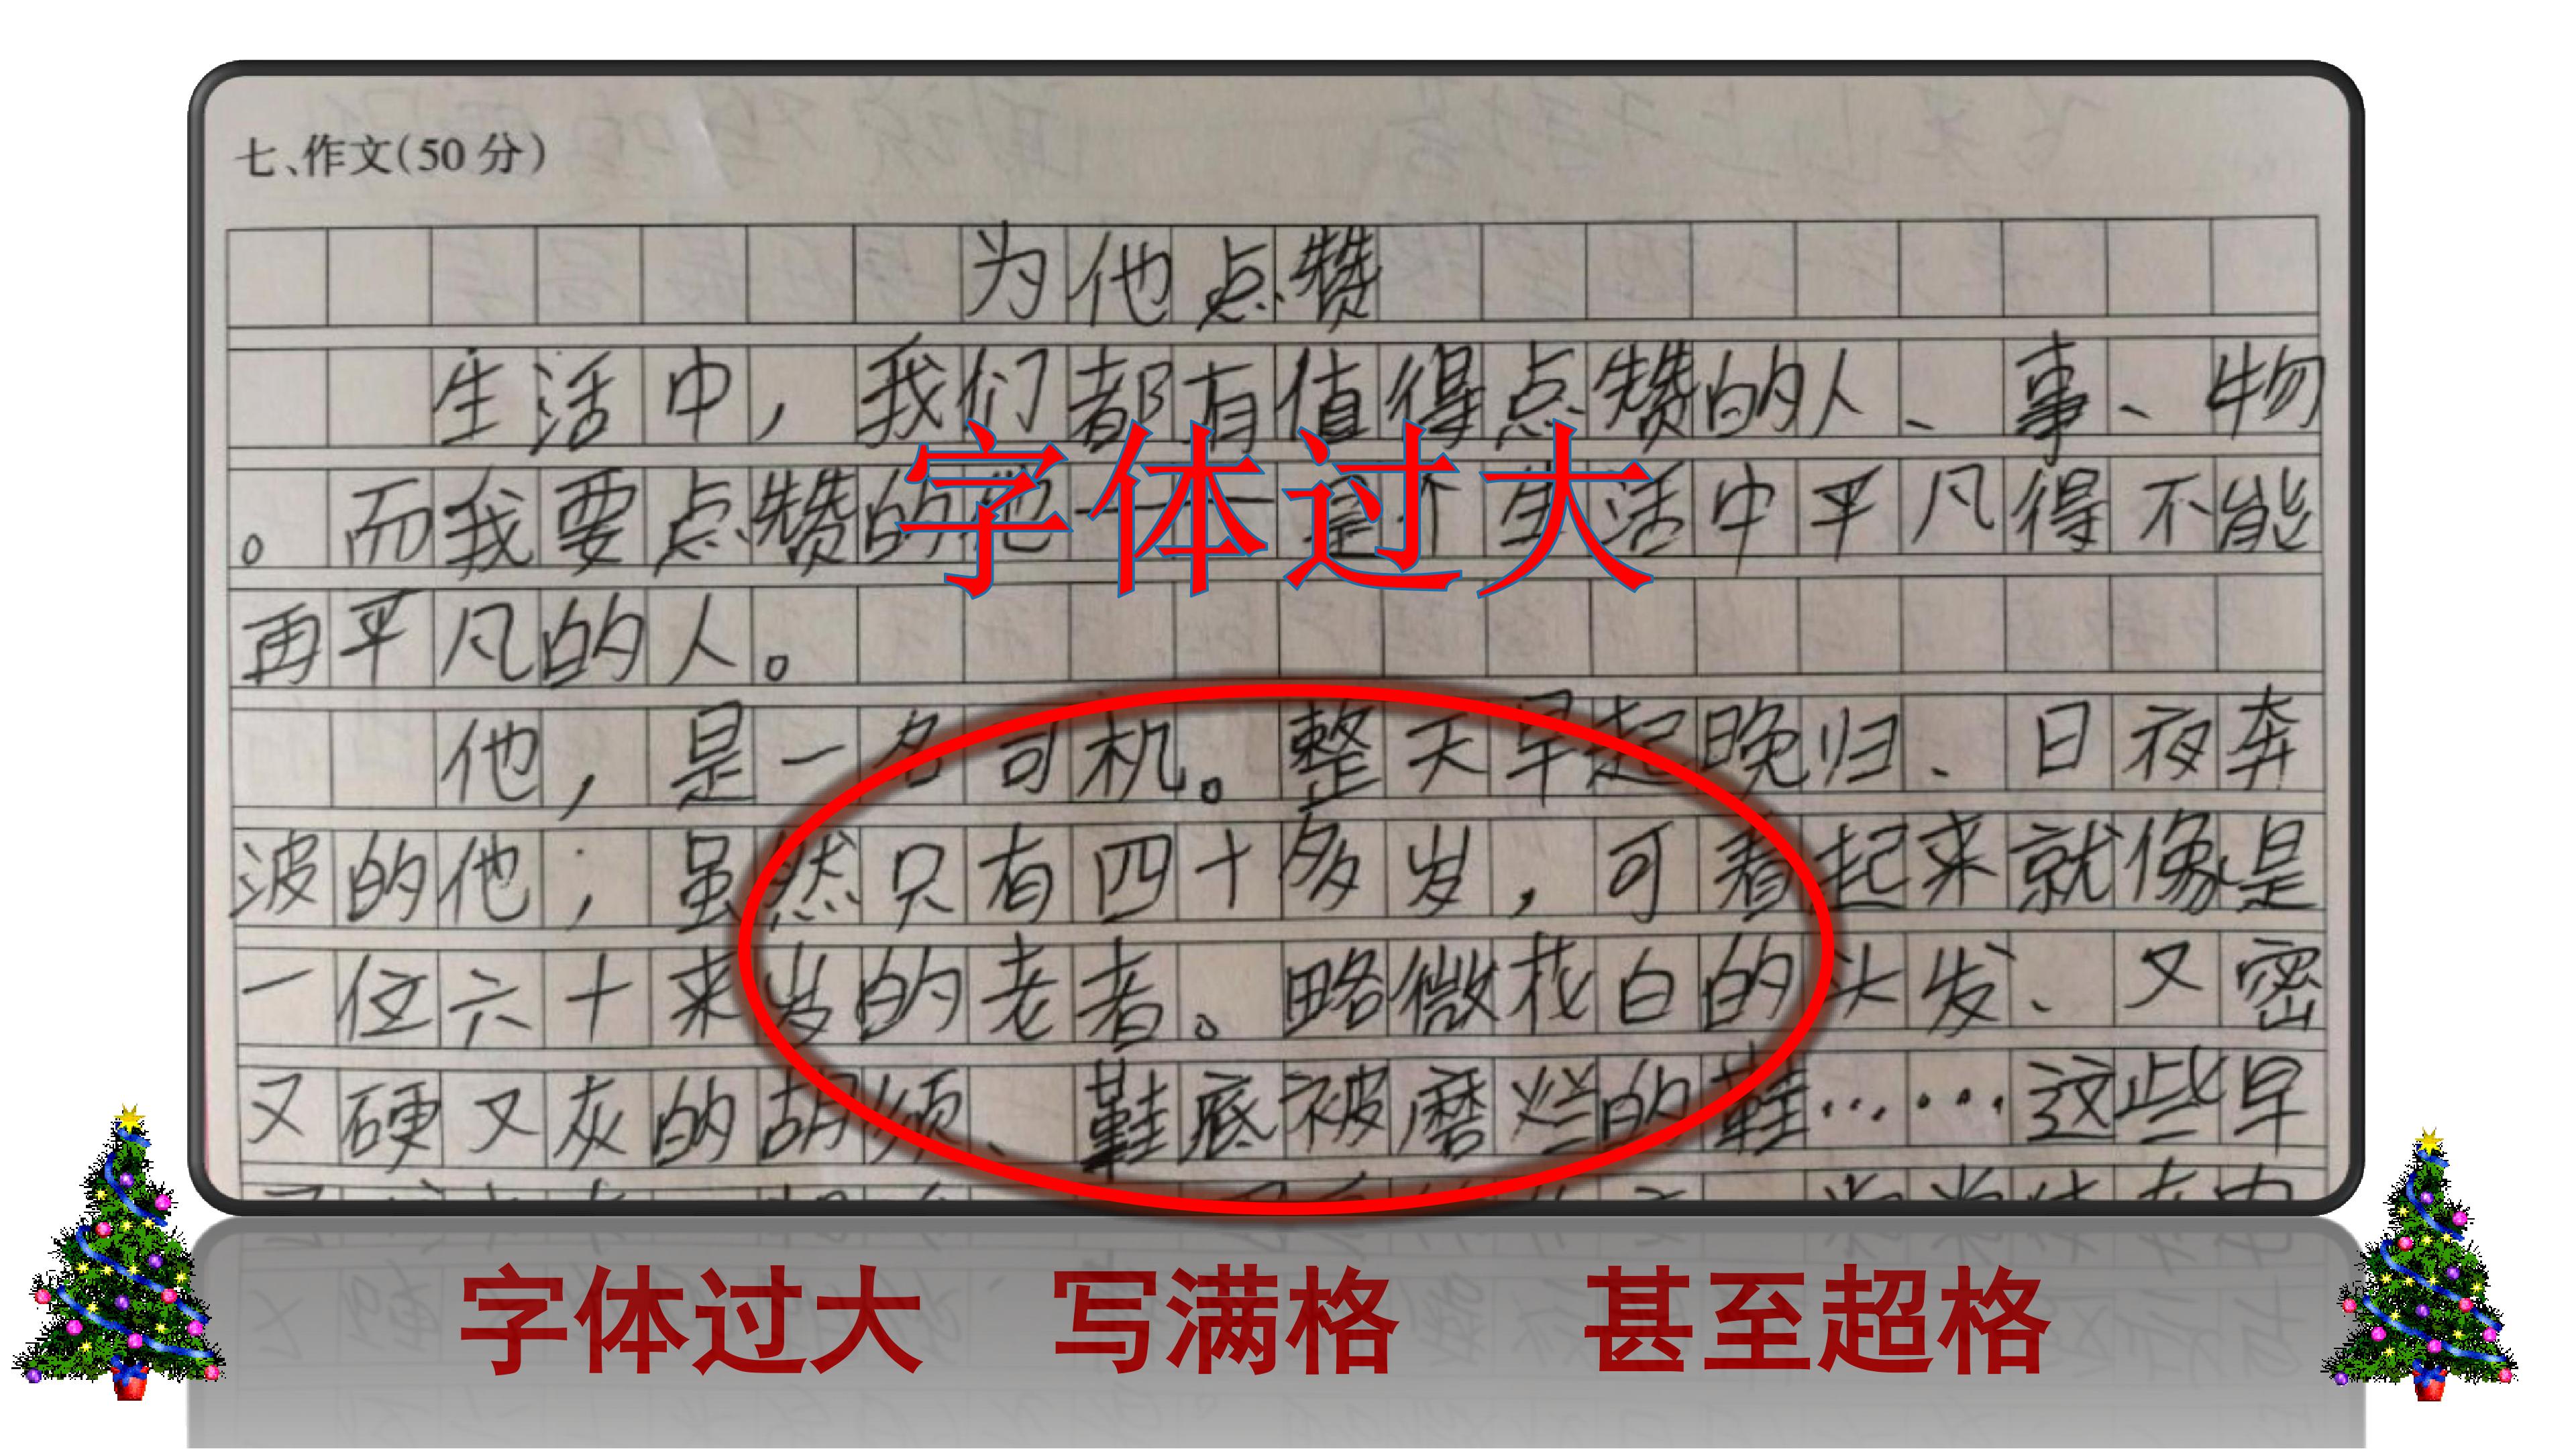 七、作文(50分)
为他点赞
生活中，我们都有值得点赞的人、事、物
字体过大
。而我要点赞的他——是个生活中平凡得不能
再平凡的人。
他，是一名司机。整天早起晚归、日夜奔
波的他；虽然只有四十多岁，可看起来就像是
一位六十来岁的老者。略微花白的头发、又密
又硬又灰的胡须、鞋底被磨烂的鞋……这些早
字体过大 写满格 甚至超格